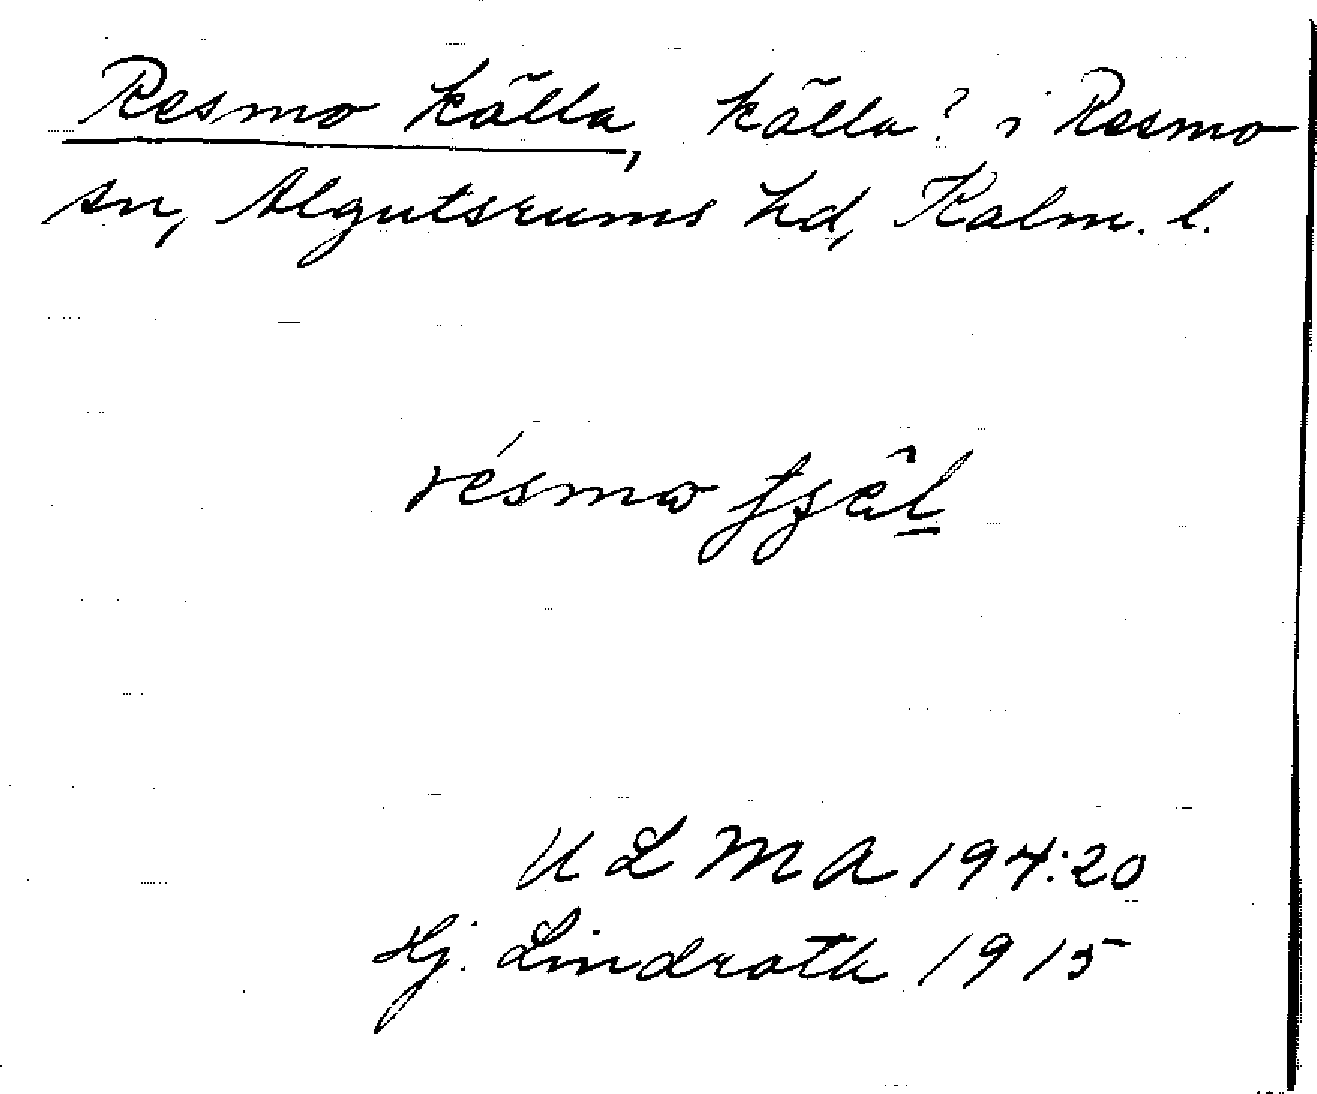 Resmo källa, källa? i Resmo
sn, Algutsrums hd, Kalm. l.
résmo
ULMA 194:20
Hj. Lindroth 1915